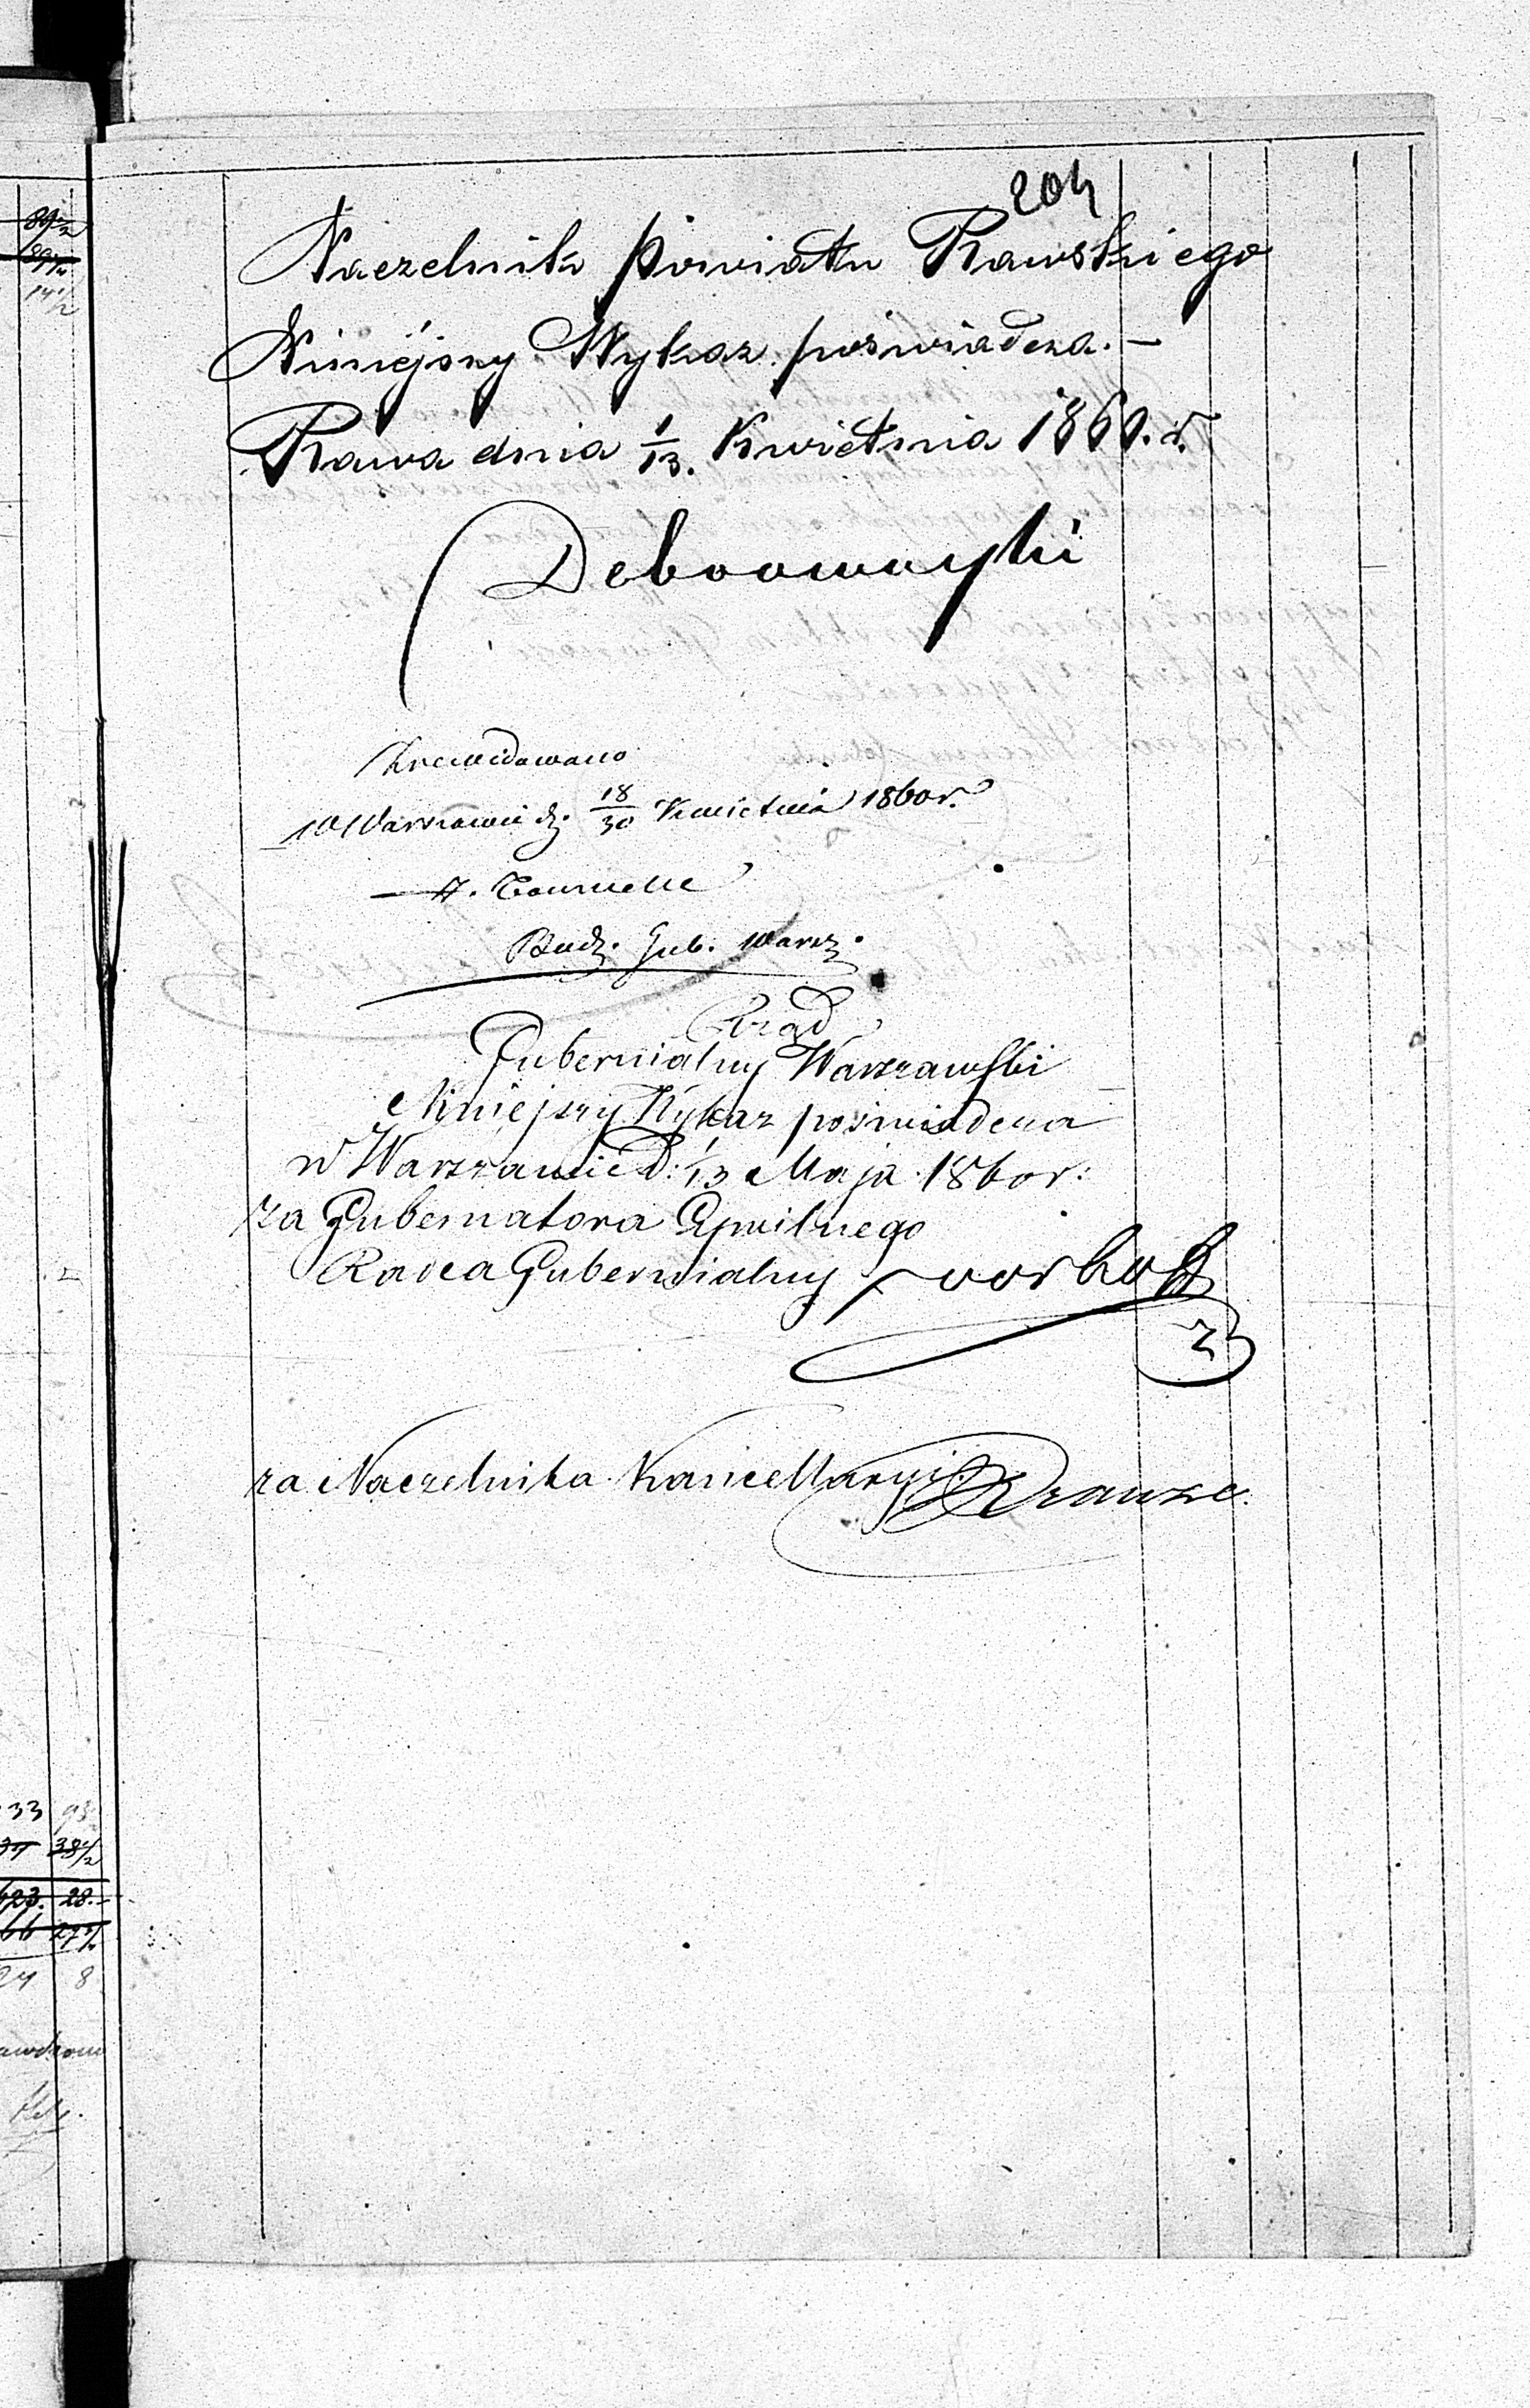 204
Naczelnik Powiatu Rawskiego
Niniejszy Wykaz poświadcza. —
Rawa dnia 1/13. Kwietnia 1860. r.
Zrewidowano
w Warszawie d. 18/30 Kwietnia 1860 r.
Bud. Gub. Warsz.
Rząd
Gubernialny Warszawski
Niniejszy Wykaz poświadcza
w Warszawie d: 1/13 Maja 1860 r:
za Gubernatora Cywilnego
Radca Gubernialny
za Naczelnika Kancellaryi Krauze.
33 93
37 38 1/2
623. 28.-
66 27 1/2
24 8